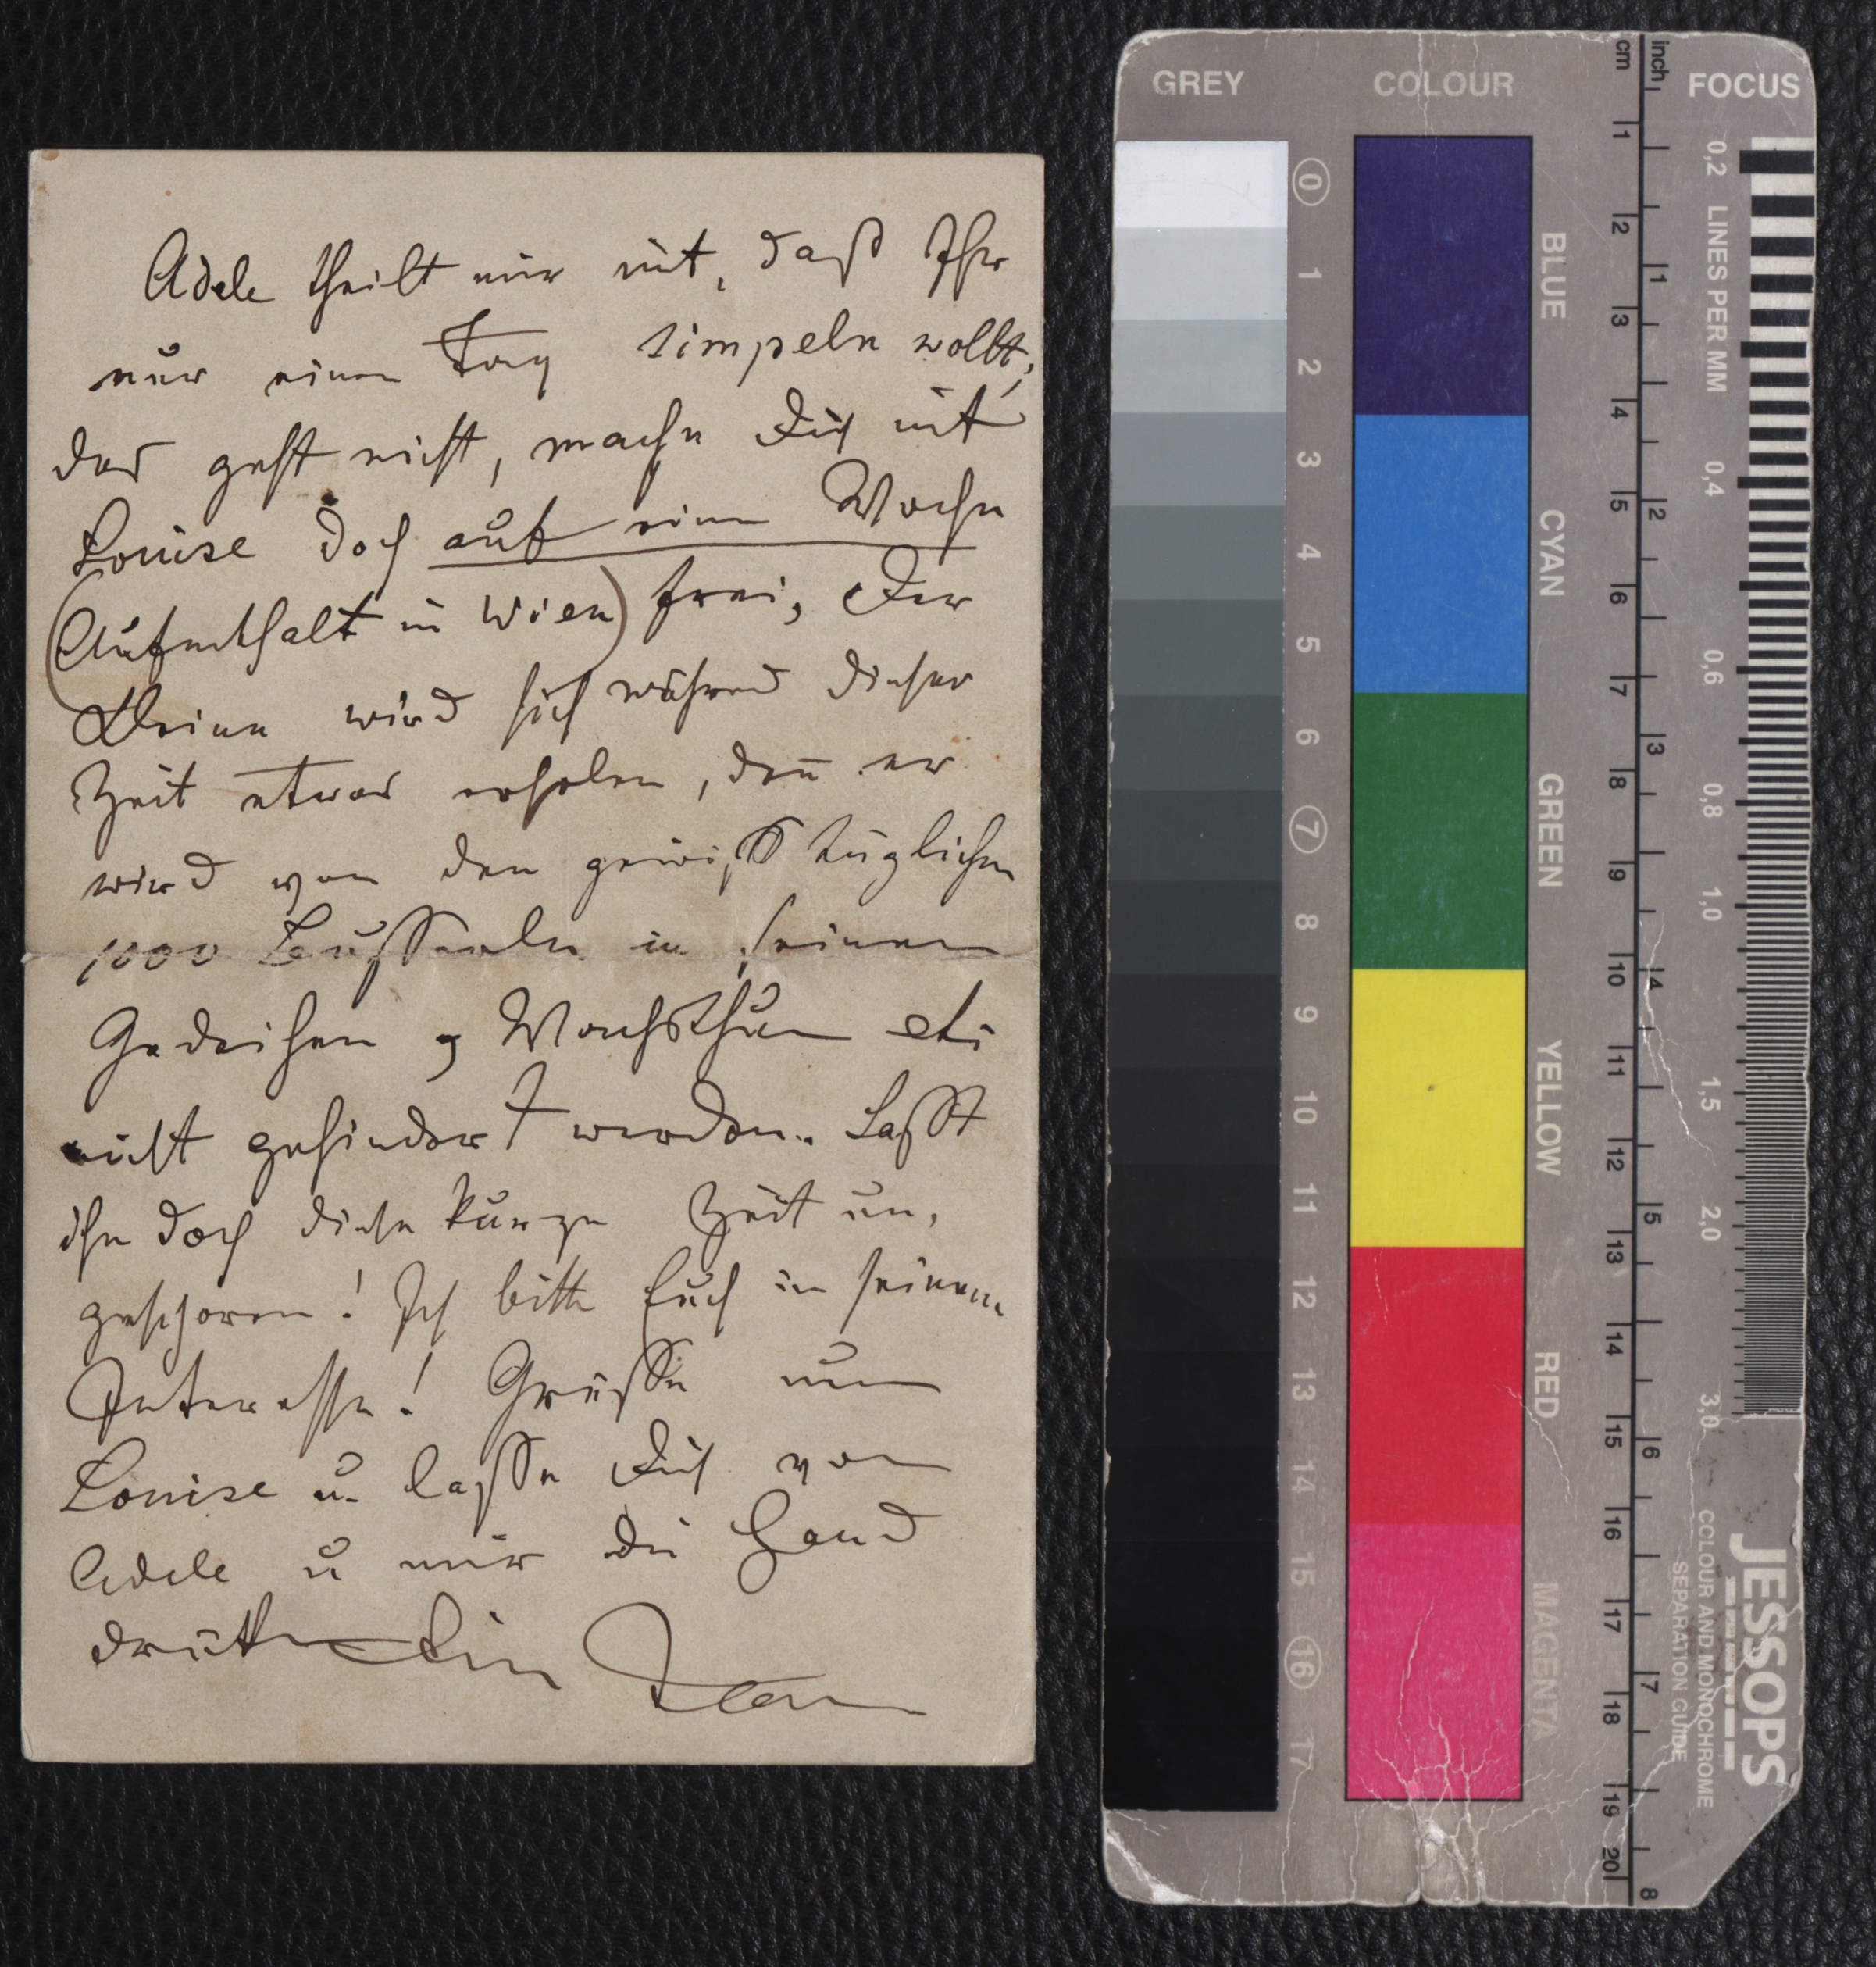 Adele theilt mir mit, daß Ihr
nur einen Tag simpeln wollt,
das geht nicht, mache Dich mit
Louise doch auf eine Woche
(Aufenthalt in Wien) frei, Der
Kleine wird sich während dieser
Zeit etwas erholen, den̄ er
wird von den gewiß täglichen
1000 Busserln in seinem
Gedeihen u Wachsthum etc
nicht gehindert werden. Laßt
ihn doch diese kurze Zeit un-
geschoren! Ich bitte Euch in seinem
Interesse! Grüße nun
Louise u. lasse Dich von
Adele u mir die Hand
drücken Dein
GREY
COLOUR
cm
inch
FOCUS
0 1 2 3 4 5 6 7 8 9 10 11 12 13 14 15 16 17
BLUE
CYAN
GREEN
YELLOW
RED
MAGENTA
1 2 3 4 5 6 7 8 9 10 11 12 13 14 15 16 17 18 19 20
1 2 3 4 5 6 7 8
0,2 LINES PER MM 0,4 0,6 0,8 1,0 1,5 2,0 3,0
JESSOPS
COLOUR AND MONOCHROME
SEPARATION GUIDE